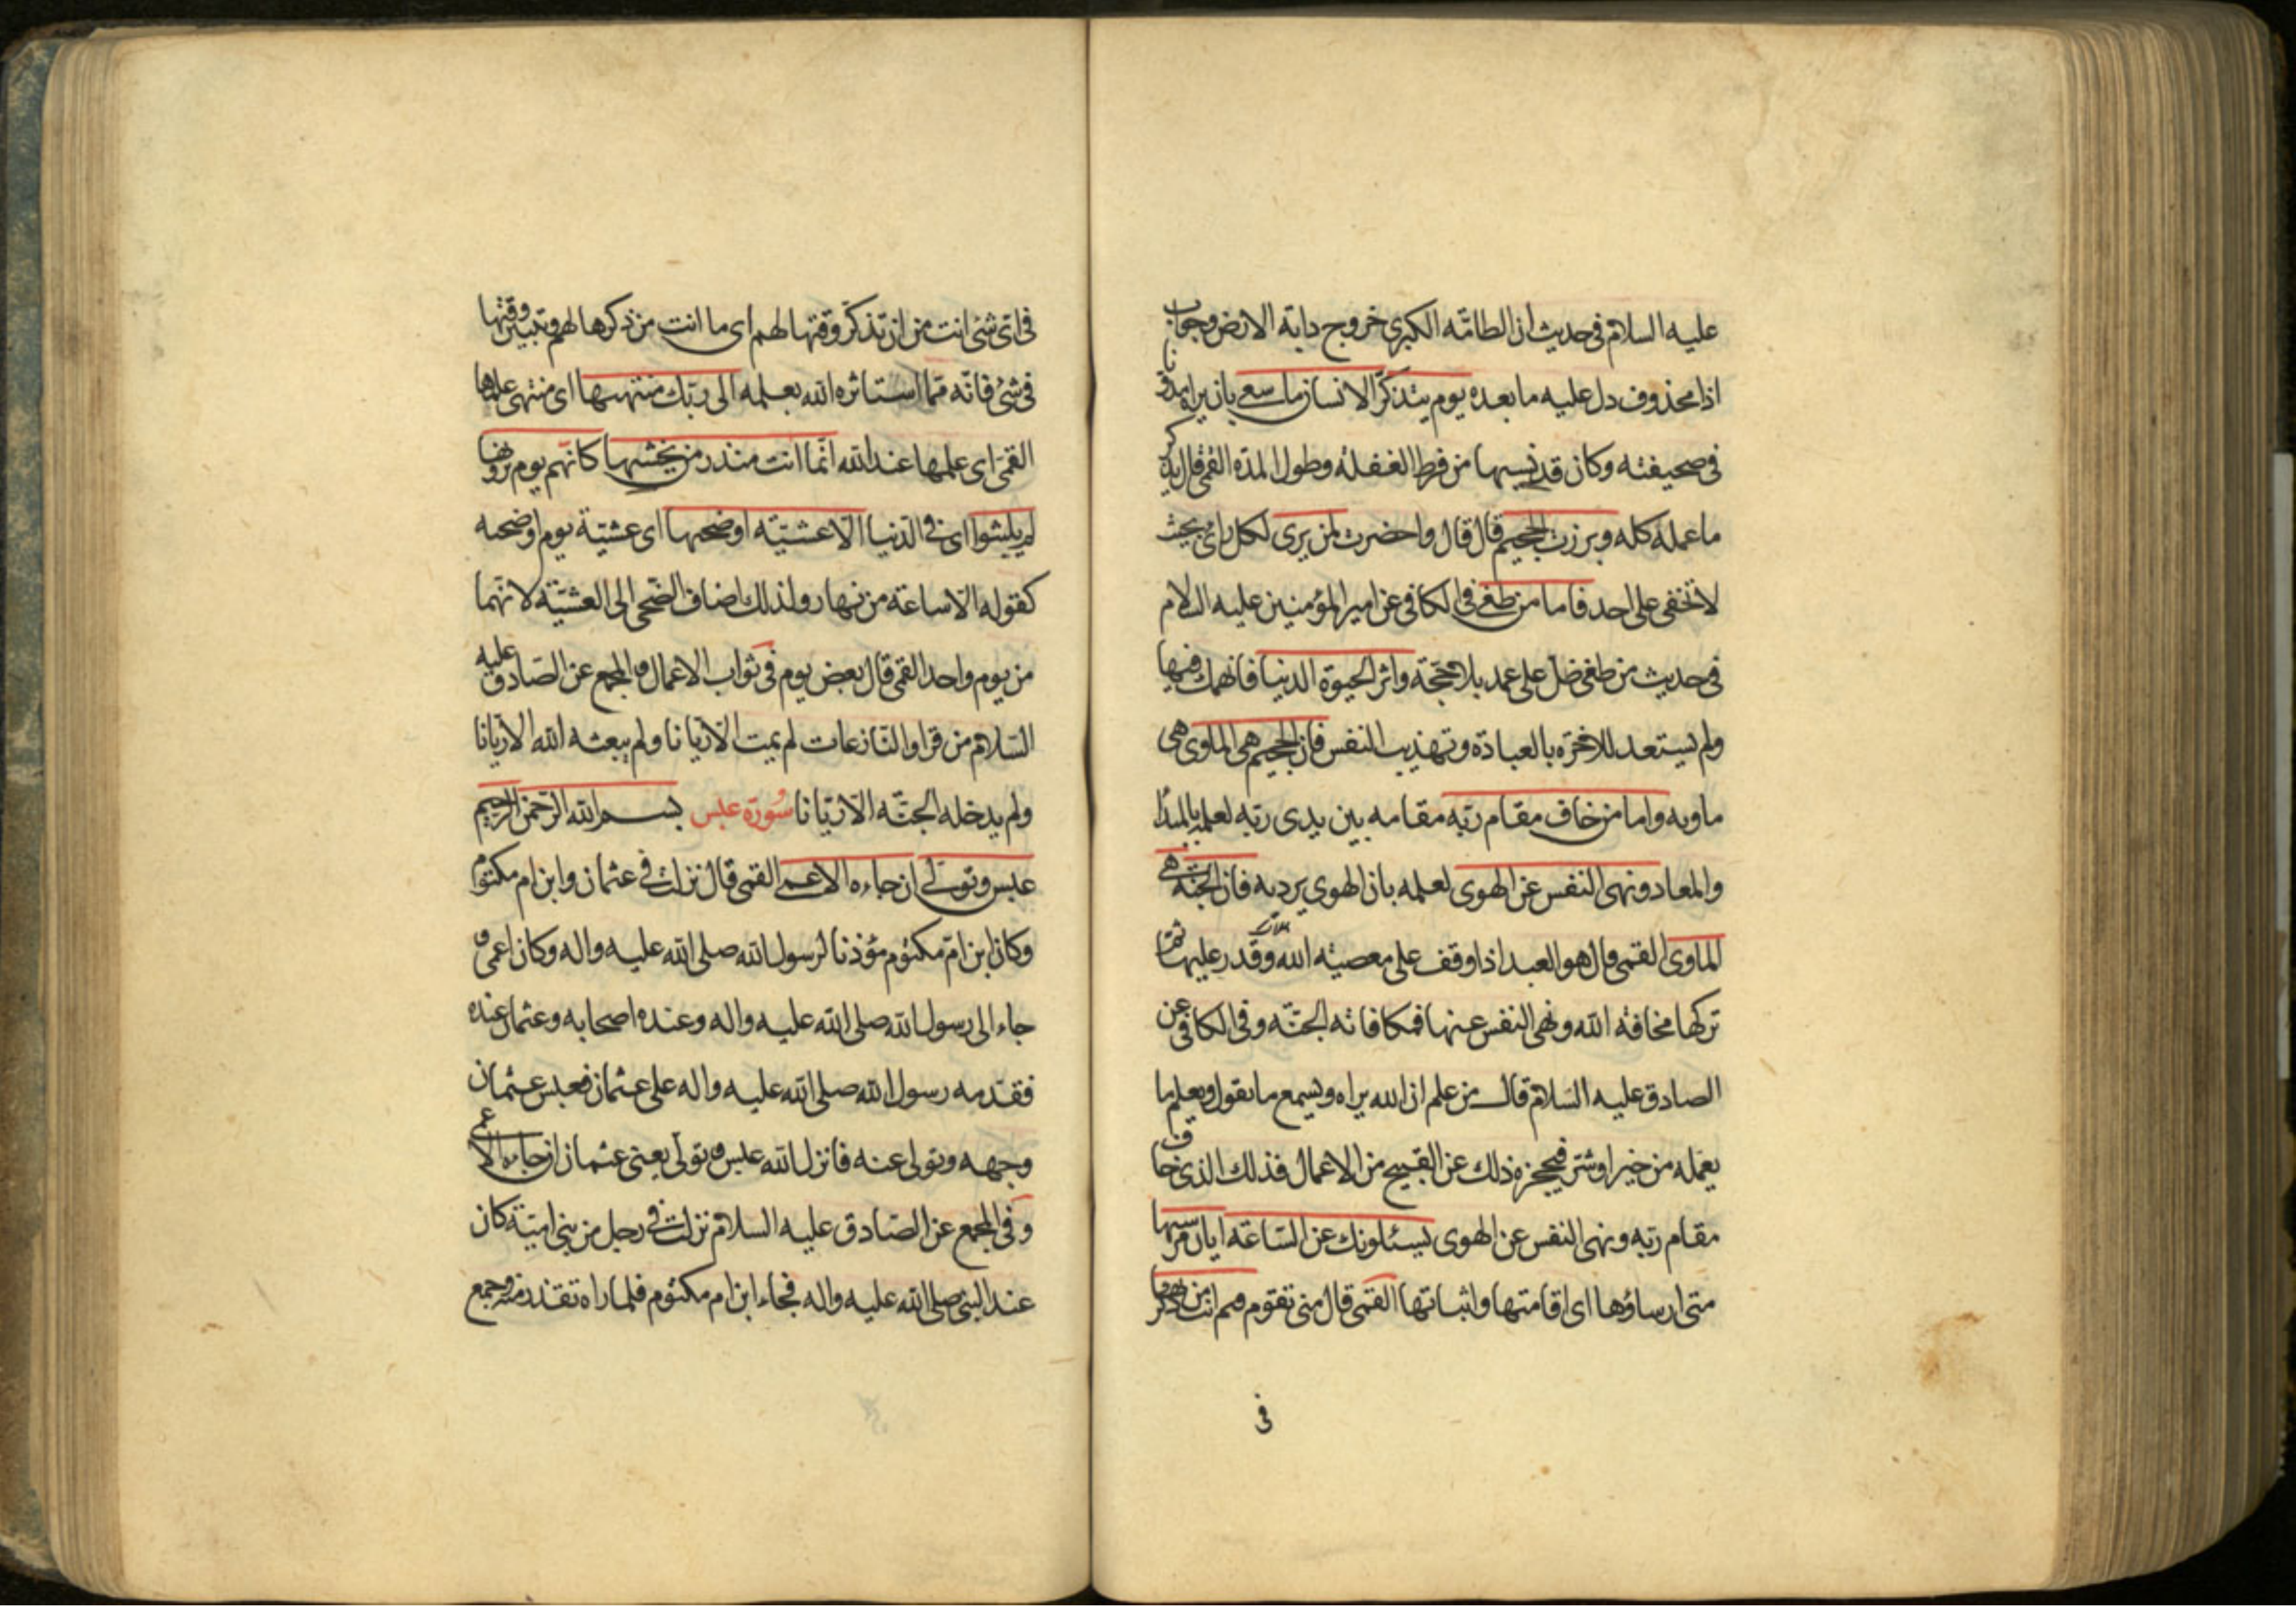 عليه السلام فى حديث ان الطامّه الكبرى خروج دابة الارض وجواب
اذا محذوف دل عليه ما بعده يوم يتذكّر الانسان ما سعى بان يراه مدونا
فى صحيفته وكان قد نسيها من فرط الغفلة وطول المدّه القمى قال يذكر
ما عمله كله وبرزت الجحيم قال قال واحضرت لمن يرى لكل رائ بحيث
لا تخفى على احد فاما من طغى فى الكافى عن امير المؤمنين عليه السلام
فى حديث من طغى ضلّ على عمد بلا حجّة واثر الحيوة الدنيا فانهمك فيها
ولم يستعد للاخرة بالعبادة وتهذيب النفس فان الجحيم هى الماوى هى
ماويه واما من خاف مقام ربّه مقامه بين يدى ربّه لعلمه بالمبدا
والمعاد ونهى النفس عن الهوى لعلمه بان الهوى يرديه فان الجنّة هى
الماوى القمى قال هو العبد اذا وقف على معصية الله وقدر عليها ثمّ
تركها مخافة الله ونهى النفس عنها فمكافاته الجنّة وفى الكافى عن
الصادق عليه السّلام قال من علم ان الله يراه ويسمع ما يقول ويعلم ما
يعمله من خير او شرّ فيحجزه ذلك عن القبيح من الاعمال فذلك الذى خاف
مقام ربّه ونهى النفس عن الهوى يسئلونك عن السّاعة ايان مرسيها
متى ارساؤها اى اقامتها واثباتها القمّى قال متى تقوم فيم انت من ذكريها
فى
فى اىّ شئ انت من ان تذكر وقتها لهم اى ما انت من ذكرها لهم وتبيين وقتها
فى شئ فانّه ممّا استاثره الله بعلمه الى ربّك منتهيها اى منتهى علمها
القمّى اى علمها عند الله انّما انت منذر من يخشيها كانّهم يوم يرونها
لم يلبثوا اى فى الدّنيا الّا عشيّة او ضحيها اى عشيّة يوم او ضحيه
كقوله الّا ساعة من نهار ولذلك اضاف الضّحى الى العشيّة لانّهما
من يوم واحد القمى قال بعض يوم فى ثواب الاعمال والمجمع عن الصّادق عليه
السّلام من قرا والنّازعات لم يمت الّا ريّانا ولم يبعثه الله الّا ريّانا
ولم يدخله الجنّة الّا ريّانا سورة عبس بسم الله الرّحمن الرّحيم
عبس وتولّى ان جاءه الاعمى القمى قال نزلت فى عثمان وابن ام مكتوم
وكان ابن امّ مكتوم مؤذنا لرسول الله صلى الله عليه واله وكان اعمى و
جاء الى رسول الله صلى الله عليه واله وعنده اصحابه وعثمان عنده
فقدمه رسول الله صلى الله عليه واله على عثمان فعبس عثمان
وجهه وتولى عنه فانزل الله عبس وتولّى يعنى عثمان ان جاءه الاعمى
وفى المجمع عن الصّادق عليه السلام نزلت فى رجل من بنى اميّة كان
عند النبى صلى الله عليه واله فجاء ابن ام مكتوم فلما راه تقذر منه وجمع